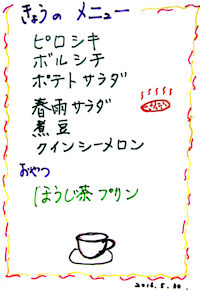 きょうの メニュー
ピロシキ
ボルシチ
ポテトサラダ
春雨サラダ
煮豆
クインシーメロン
おやつ
ほうじ茶プリン
2016.5.30.